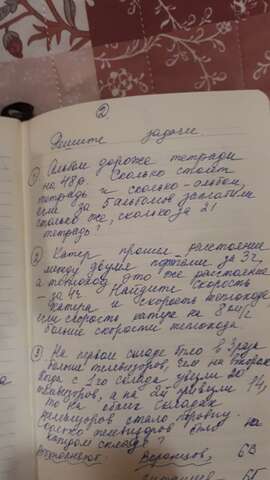 ②
Решите задачи.
① Альбом дороже тетради
на 48р. Сколько стоит
тетрадь и сколько - альбом,
если за 5 альбомов заплатили
столько же, сколько за 21
тетрадь?
② Катер прошел расстояние
между двумя за 3ч,
а теплоход это же расстояние
- за 4ч. Найдите скорость
катера и скорость теплохода
если скорость катера на 8 км/ч
больше скорости теплохода.
③ На первом складе было в 3 раза
больше телевизоров, чем на втором
когда с 1го склада увезли 20
телевизоров, а на 2й привезли 14,
то на обоих складах
телевизоров стало поровну.
Сколько телевизоров было на
каждом складе?
Выполняют: Воронцов, 6В
6Б